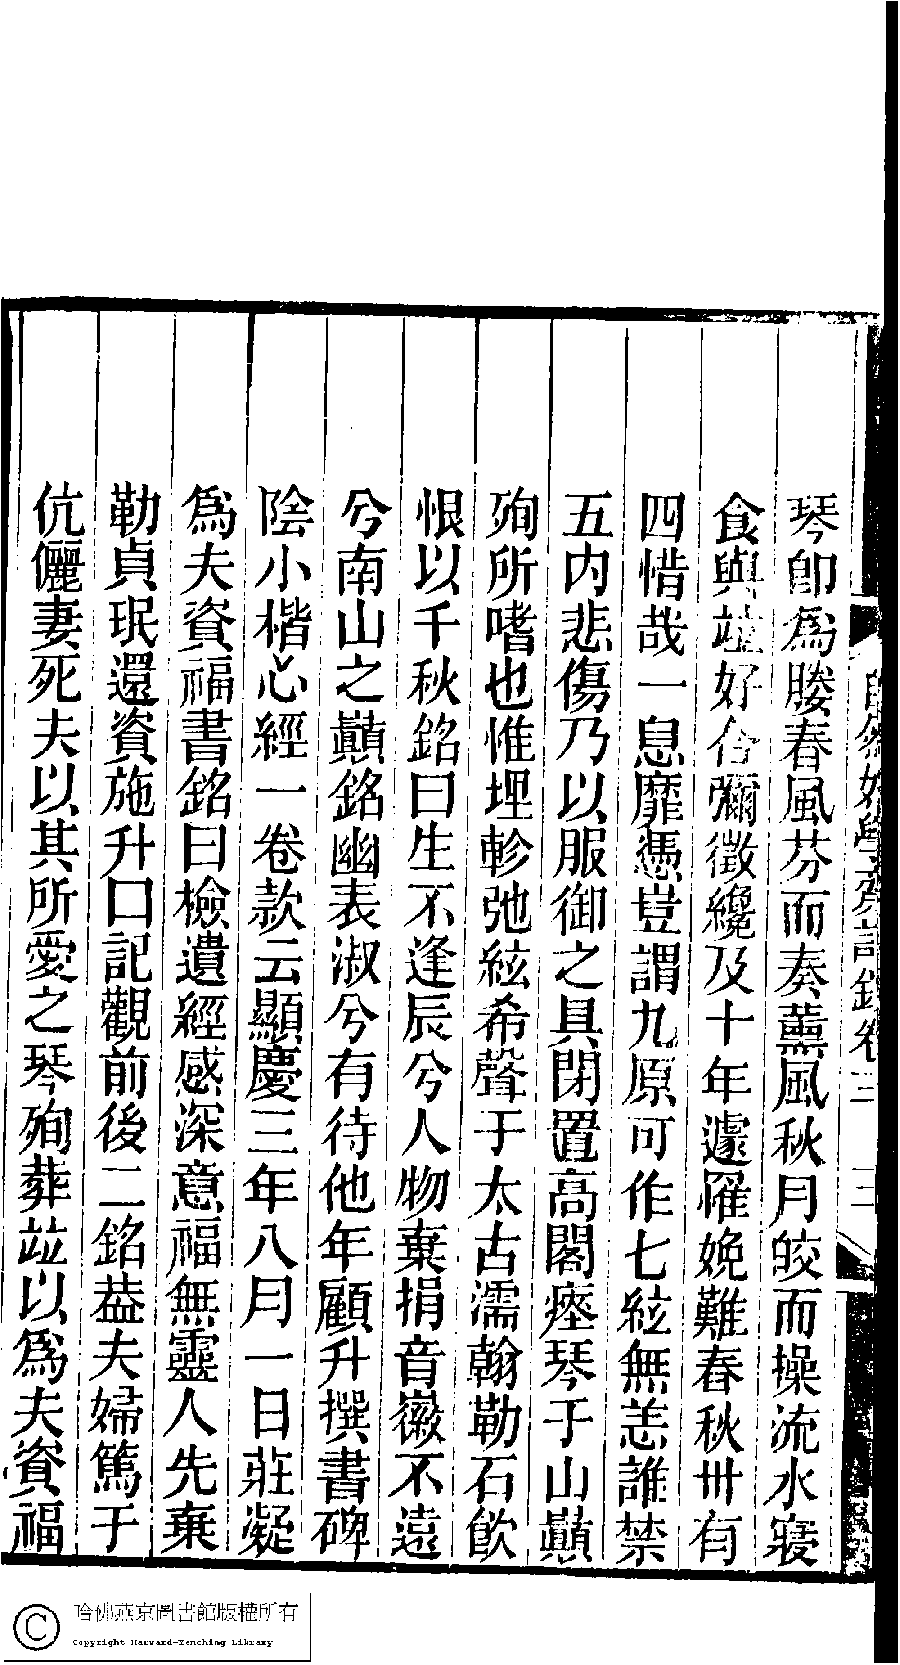 琴卽爲媵春風芬而奏薰風秋月皎而操流水寑
食與竝好合彌徵纔及十年遽罹娩難春秋卅有
四惜哉一息靡憑豈謂九原可作七絃無恙誰禁
五内悲傷乃以服御之具閉置高閣瘞琴于山巔
殉所嗜也惟埋軫弛絃希聲于太古濡翰勒石飮
恨以千秋銘曰生不逢辰兮人物棄捐音徽不遠
兮南山之巔銘幽表淑兮有待他年顧升撰書碑
陰小楷心經一卷款云顯慶三年八月一日莊凝
爲夫資福書銘曰檢遺經感深意福無靈人先棄
勒貞珉還資施升口記觀前後二銘葢夫婦篤于
伉儷妻死夫以其所愛之琴殉葬竝以爲夫資福
學齋訪錄卷三 三
哈佛燕京圖書館版權所有
Copyright Harvard-Yenching Library